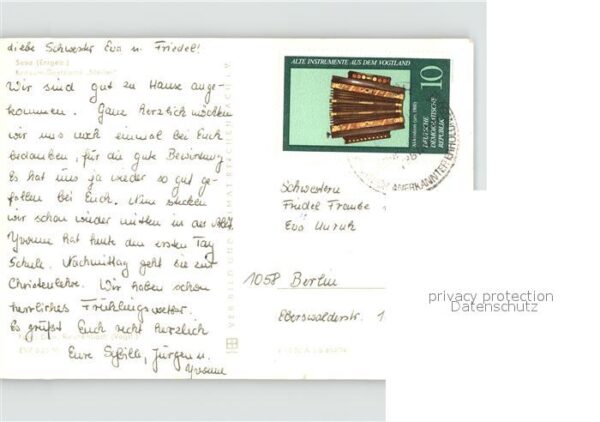 Liebe Schwester Eva u. Friedel!
Sosa (Erzgeb.)
Konsum-Gaststätte „Meiler"
Wir sind gut zu Hause ange-
kommen. Ganz herzlich möchten
wir uns noch einmal bei Euch
bedanken, für die gute Bewirtung
Es hat uns ja wieder so gut ge-
fallen bei Euch. Nun stecken
wir schon wieder mitten in der
Yvonne hat heute den ersten Tag
Schule. Nachmittag geht sie zur
Christenlehre. Wir haben schon
herrliches Frühlingswetter.
Es grüßt Euch recht herzlich
Eure Sybille, Jürgen u.
Yvonne
VEB BILD UND HEIMAT REICHENBACH I. V.
ALTE INSTRUMENTE AUS DEM VOGTLAND
10
Akkordeon (um 1900)
DEUTSCHE
DEMOKRATISCHE
REPUBLIK
ANERKANNTER
Schwestern
Friedel
Eva
1058 Berlin
Eberswalderstr. 1
privacy protection
Datenschutz